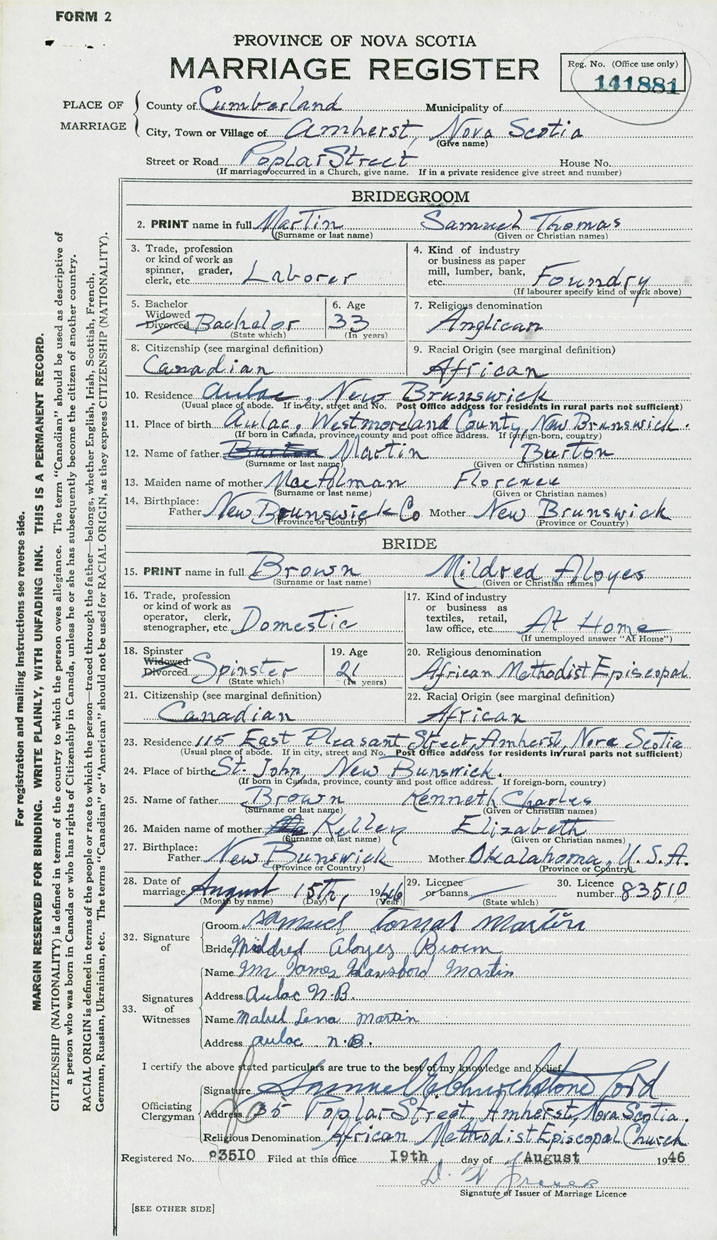 FORM 2
PROVINCE OF NOVA SCOTIA
MARRIAGE REGISTER
Reg. No. (Office use only)
141881
PLACE OF MARRIAGE
County of Cumberland Municipality of
City, Town or Village of Amherst, Nova Scotia
(Give name)
Street or Road Poplar Street House No.
(If marriage occurred in a Church, give name. If in a private residence give street and number)
BRIDEGROOM
2. PRINT name in full Martin Samuel Thomas
(Surname or last name) (Given or Christian names)
3. Trade, profession or kind of work as spinner, grader, clerk, etc. Laborer
4. Kind of industry or business as paper mill, lumber, bank, etc. Foundry
(If labourer specify kind of work above)
5. Bachelor Widowed Divorced Bachelor
(State which)
6. Age 33
(In years)
7. Religious denomination
Anglican
8. Citizenship (see marginal definition)
Canadian
9. Racial Origin (see marginal definition)
African
10. Residence Aulac, New Brunswick
(Usual place of abode. If in city, street and No. Post Office address for residents in rural parts not sufficient)
11. Place of birth Aulac, Westmoreland County, New Brunswick.
(If born in Canada, province, county and post office address. If foreign-born, country)
12. Name of father Burton Martin Burton
(Surname or last name) (Given or Christian names)
13. Maiden name of mother Florence
(Surname or last name) (Given or Christian names)
14. Birthplace:
Father New Brunswick Co Mother New Brunswick
(Province or Country) (Province or Country)
BRIDE
15. PRINT name in full Brown Mildred Aloyes
(Surname or last name) (Given or Christian names)
16. Trade, profession or kind of work as operator, clerk, stenographer, etc. Domestic
17. Kind of industry or business as textiles, retail, law office, etc. At Home
(If unemployed answer "At Home")
18. Spinster Widowed Divorced Spinster
(State which)
19. Age 21
(In years)
20. Religious denomination
African Methodist Episcopal
21. Citizenship (see marginal definition)
Canadian
22. Racial Origin (see marginal definition)
African
23. Residence 115 East Pleasant Street, Amherst, Nova Scotia
(Usual place of abode. If in city, street and No. Post Office address for residents in rural parts not sufficient)
24. Place of birth St. John, New Bunswick.
(If born in Canada, province, county and post office address. If foreign-born, country)
25. Name of father Brown Kenneth Charles
(Surname or last name) (Given or Christian names)
26. Maiden name of mother Kelley Elizabeth
(Surname or last name) (Given or Christian names)
27. Birthplace:
Father New Bunswick Mother Okalahoma, U.S.A.
(Province or Country) (Province or Country)
28. Date of marriage August 15th, 1946
(Month by name) (Day) (Year)
29. Licence or banns
(State which)
30. Licence number 83510
32. Signature of
Groom Samuel Tomas Martin
Bride Mildred Aloyes Brown
33. Signatures of Witnesses
Name Mr James Martin
Address Aulac N.B.
Name Mabel Lena Martin
Address Aulac N.B.
I certify the above stated particulars are true to the best of my knowledge and belief.
Officiating Clergyman
Signature Samuel Churchstone Lord
Address 35 Poplar Street, Amherst, Nova Scotia.
Religious Denomination African Methodist Episcopal Church
Registered No. 83510 Filed at this office 19th day of August 1946
D. W.
Signature of Issuer of Marriage Licence
[SEE OTHER SIDE]
For registration and mailing instructions see reverse side.
MARGIN RESERVED FOR BINDING. WRITE PLAINLY, WITH UNFADING INK. THIS IS A PERMANENT RECORD.
CITIZENSHIP (NATIONALITY) is defined in terms of the country to which the person owes allegiance. The term "Canadian" should be used as descriptive of
a person who was born in Canada or who has rights of Citizenship in Canada, unless he or she has subsequently become the citizen of another country.
RACIAL ORIGIN is defined in terms of the people or race to which the person—traced through the father—belongs, whether English, Irish, Scottish, French,
German, Russian, Ukrainian, etc. The terms "Canadian" or "American" should not be used for RACIAL ORIGIN, as they express CITIZENSHIP (NATIONALITY).